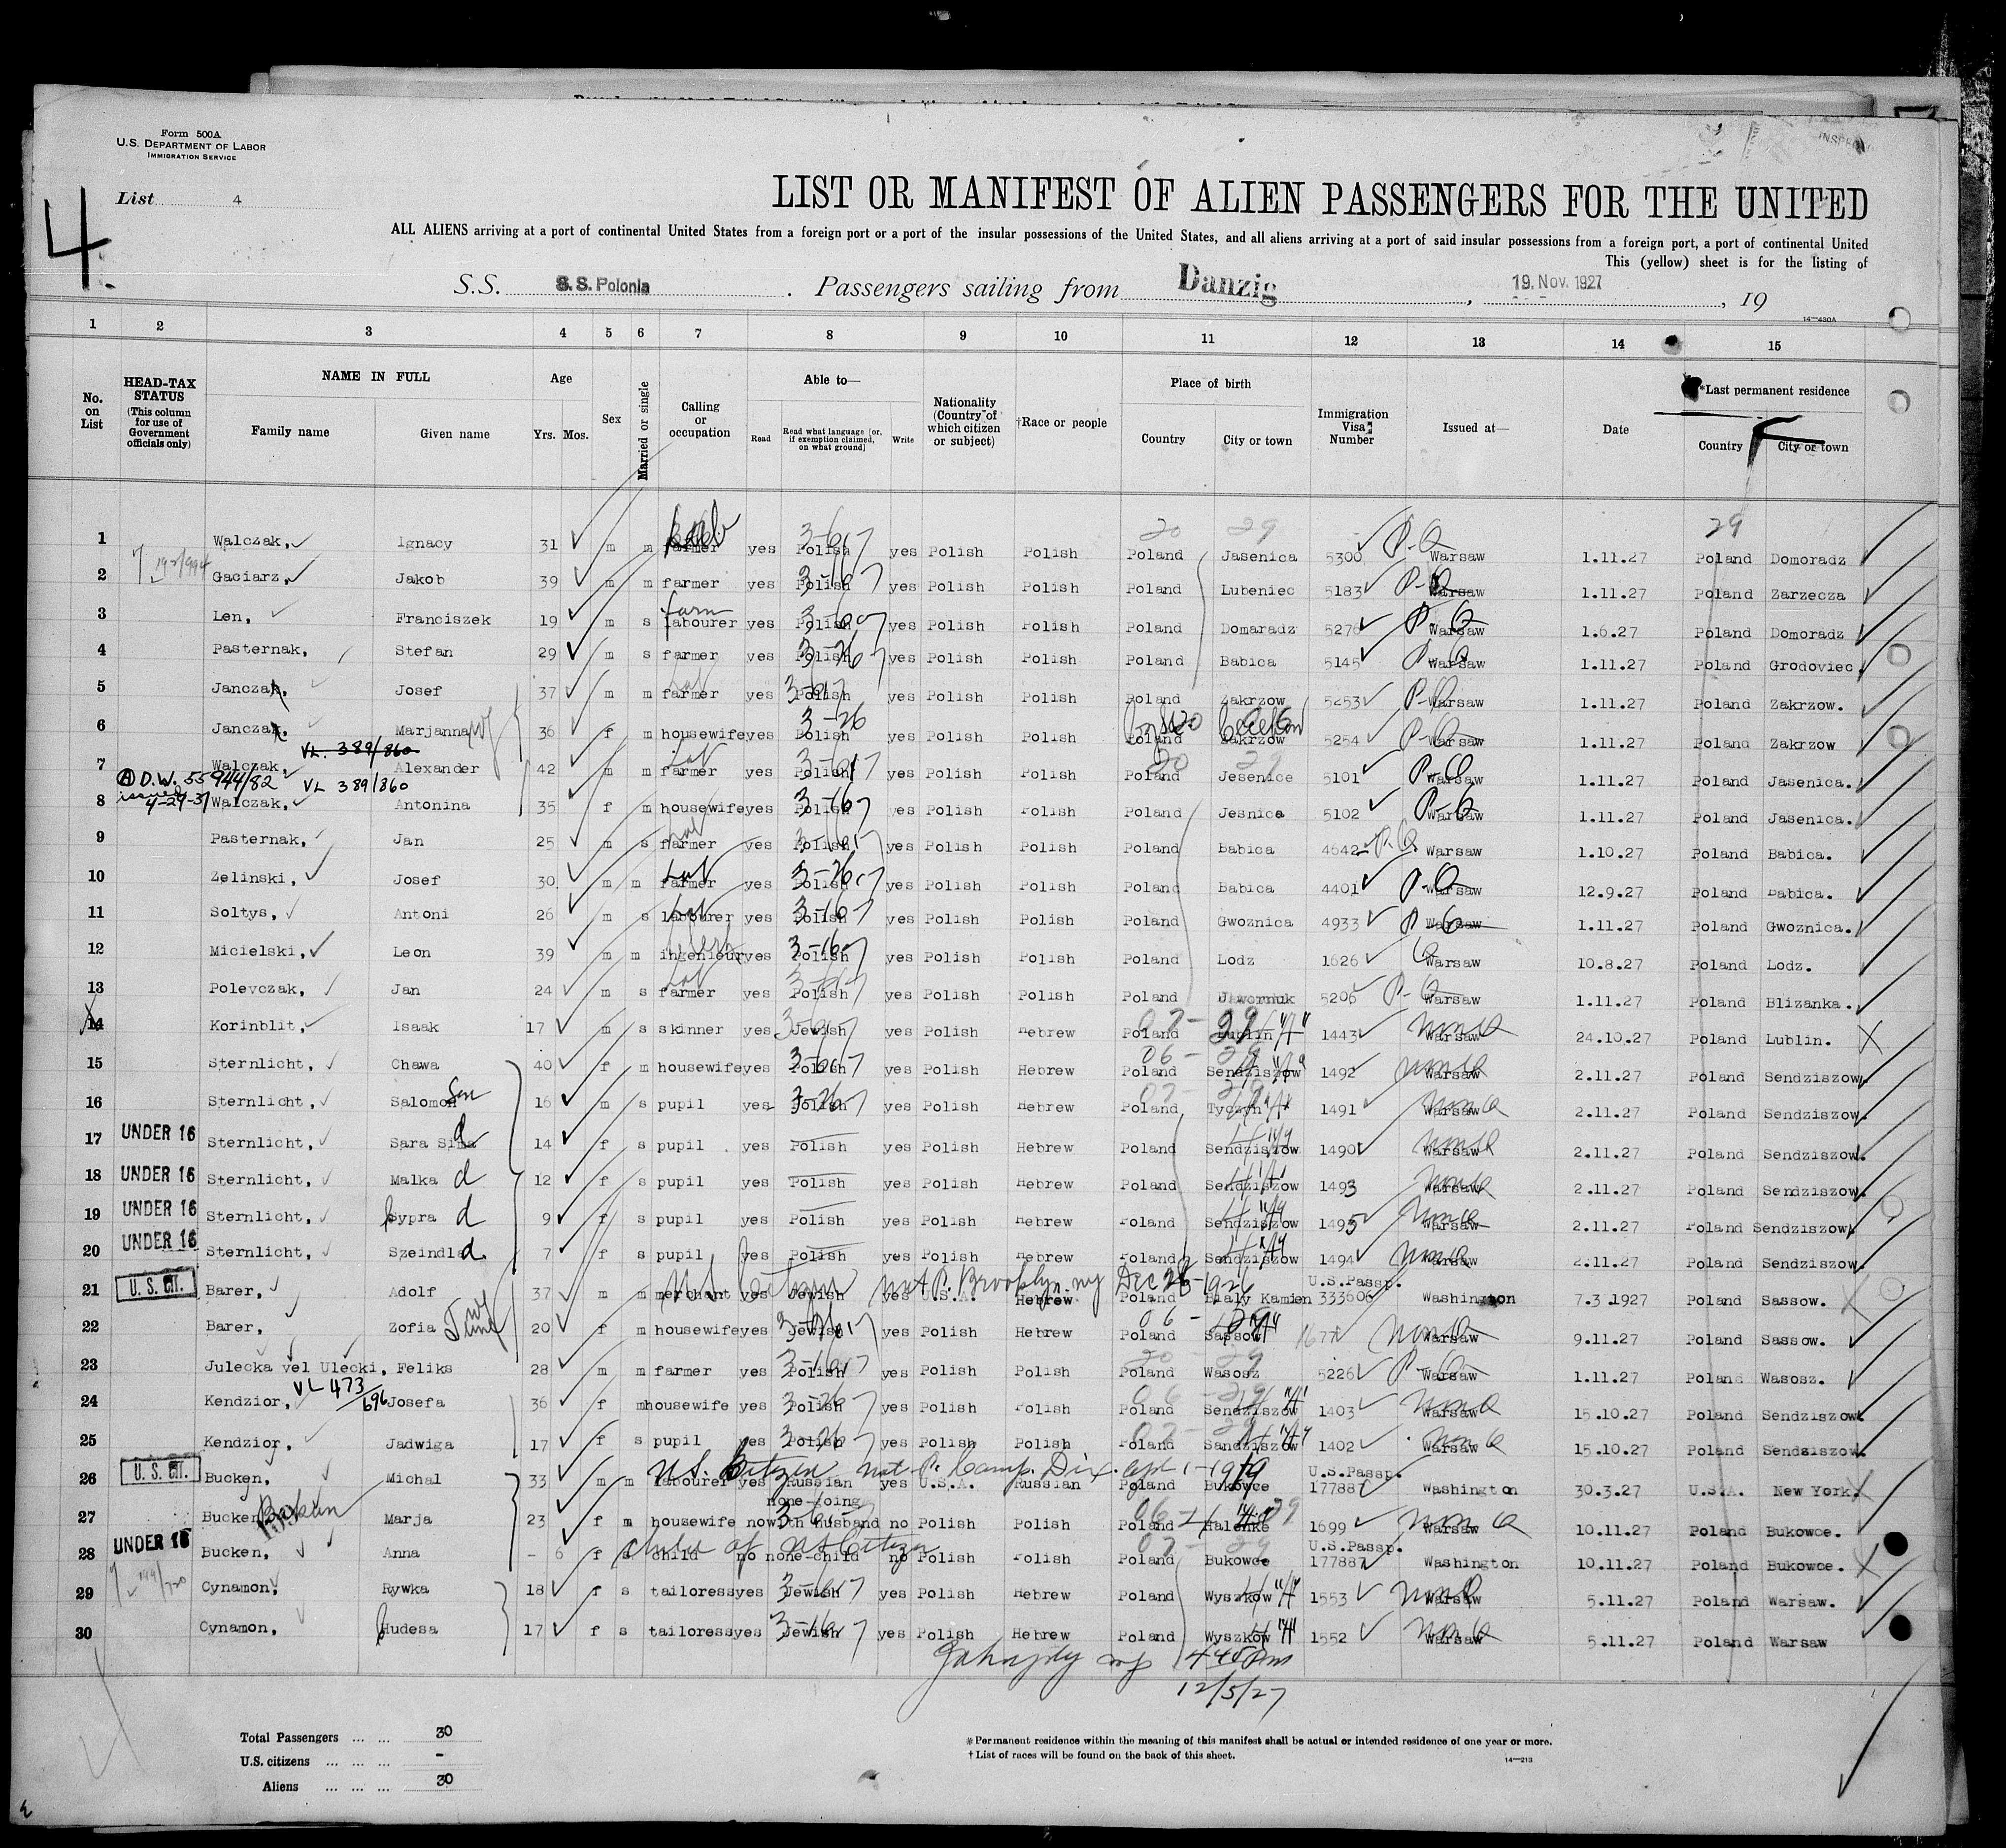 Form 500A
U.S. DEPARTMENT OF LABOR
IMMIGRATION SERVICE
List 4
4.
LIST OR MANIFEST OF ALIEN PASSENGERS FOR THE UNITED
ALL ALIENS arriving at a port of continental United States from a foreign port or a port of the insular possessions of the United States, and all aliens arriving at a port of said insular possessions from a foreign port, a port of continental United
This (yellow) sheet is for the listing of
S.S. S.S. Polonia. Passengers sailing from Danzig, 19. Nov. 1927, 19
14—430A
1 2 3 4 5 6 7 8 9 10 11 12 13 14 15
No. on List
HEAD-TAX STATUS (This column for use of Government officials only)
NAME IN FULL Family name Given name
Age Yrs. Mos.
Sex
Married or single
Calling or occupation
Able to— Read Read what language [or, if exemption claimed, on what ground] Write
Nationality (Country of which citizen or subject)
†Race or people
Place of birth Country City or town
Immigration Visa Number
Issued at—
Date
*Last permanent residence Country City or town
20 29 29
1 Walczak, Ignacy 31 m m farmer yes Polish yes Polish Polish Poland Jasenica 5300 P-Q Warsaw 1.11.27 Poland Domoradz
2 Gaciarz, Jakob 39 m m farmer yes Polish yes Polish Polish Poland Lubeniec 5183 Warsaw 1.11.27 Poland Zarzecza
3 Len, Franciszek 19 m s farm labourer yes Polish yes Polish Polish Poland Domaradz 5276 Warsaw 1.6.27 Poland Domoradz
4 Pasternak, Stefan 29 m s farmer yes Polish yes Polish Polish Poland Babica 5145 Warsaw 1.11.27 Poland Grodoviec.
5 Janczak, Josef 37 m m farmer yes Polish yes Polish Polish Poland Zakrzow 5253 Warsaw 1.11.27 Poland Zakrzow.
6 Janczak, Marjanna wf 36 f m housewife yes Polish yes Polish Polish Poland Zakrzow 5254 Warsaw 1.11.27 Poland Zakrzow
VL. 389/860
7 Walczak, Alexander 42 m m farmer yes Polish yes Polish Polish Poland Jesenice 5101 Warsaw 1.11.27 Poland Jasenica.
D.W. 55944/82 VL 389/860
issued 4-29-31
8 Walczak, Antonina 35 f m housewife yes Polish yes Polish Polish Poland Jesnica 5102 Warsaw 1.11.27 Poland Jasenica.
9 Pasternak, Jan 25 m s farmer yes Polish yes Polish Polish Poland Babica 4642 Warsaw 1.10.27 Poland Babica.
10 Zelinski, Josef 30 m m farmer yes Polish yes Polish Polish Poland Babica 4401 Warsaw 12.9.27 Poland Babica.
11 Soltys, Antoni 26 m s labourer yes Polish yes Polish Polish Poland Gwoznica 4933 Warsaw 1.11.27 Poland Gwoznica.
12 Micielski, Leon 39 m m ingenieur yes Polish yes Polish Polish Poland Lodz 1626 Warsaw 10.8.27 Poland Lodz.
13 Polevczak, Jan 24 m s farmer yes Polish yes Polish Polish Poland Jawornuk 5206 Warsaw 1.11.27 Poland Blizanka.
14 Korinblit, Isaak 17 m s skinner yes Jewish yes Polish Hebrew Poland Lublin 1443 Warsaw 24.10.27 Poland Lublin.
15 Sternlicht, Chawa 40 f m housewife yes Polish yes Polish Hebrew Poland Sendziszow 1492 Warsaw 2.11.27 Poland Sendziszow.
16 Sternlicht, Salomon Son 16 m s pupil yes Polish yes Polish Hebrew Poland Tyczyn 1491 Warsaw 2.11.27 Poland Sendziszow.
17 UNDER 16 Sternlicht, Sara Sima d 14 f s pupil yes Polish yes Polish Hebrew Poland Sendziszow 1490 Warsaw 2.11.27 Poland Sendziszow.
18 UNDER 16 Sternlicht, Malka d 12 f s pupil yes Polish yes Polish Hebrew Poland Sendziszow 1493 Warsaw 2.11.27 Poland Sendziszow.
19 UNDER 16 Sternlicht, Sypra d 9 f s pupil yes Polish yes Polish Hebrew Poland Sendziszow 1495 Warsaw 2.11.27 Poland Sendziszow.
20 UNDER 16 Sternlicht, Szeindla d. 7 f s pupil yes Polish yes Polish Hebrew Poland Sendziszow 1494 Warsaw 2.11.27 Poland Sendziszow.
U.S. Citizen Nat P. Brooklyn ny Dec 28-1926
21 U.S. CIT. Barer, Adolf 37 m m merchant yes Jewish yes U.S.A. Hebrew Poland Bialy Kamien U.S.Passp. 333606 Washington 7.3 1927 Poland Sassow.
22 Barer, Zofia wf 20 f m housewife yes Jewish yes Polish Hebrew Poland Sassow 1677 Warsaw 9.11.27 Poland Sassow.
23 Julecka vel Ulecki, Feliks 28 m m farmer yes Polish yes Polish Polish Poland Wasosz 5226 Warsaw 1.11.27 Poland Wasosz.
24 Kendzior, VL 473/696 Josefa 36 f m housewife yes Polish yes Polish Polish Poland Sendziszow 1403 Warsaw 15.10.27 Poland Sendziszow.
25 Kendzior, Jadwiga 17 f s pupil yes Polish yes Polish Polish Poland Sandziszow 1402 Warsaw 15.10.27 Poland Sendsiszow.
U.S. Citizen Nat P. Camp Dix. apl 1-1919
26 U.S. CIT. Bucken, Michal 33 m m labourer yes Russian yes U.S.A. Russian Poland Bukowce U.S.Passp. 177887 Washington 30.3.27 U.S.A. New York.
27 Bucken Marja 23 f m housewife no none-joing with husband no Polish Polish Poland Halenke 1699 Warsaw 10.11.27 Poland Bukowce.
child of US Citizen
28 UNDER 16 Bucken, Anna - 6 f s child no none-child no Polish Polish Poland Bukowce U.S.Passp. 177887 Washington 10.11.27 Poland Bukowce.
29 Cynamon, Rywka 18 f s tailoress yes Jewish yes Polish Hebrew Poland Wyszkow 1553 Warsaw 5.11.27 Poland Warsaw.
30 Cynamon, Hudesa 17 f s tailoress yes Jewish yes Polish Hebrew Poland Wyszkow 1552 Warsaw 5.11.27 Poland Warsaw
445 Pm
12/5/27
Total Passengers ... ... 30
U.S. citizens ... ... ... -
Aliens ... ... ... 30
*Permanent residence within the meaning of this manifest shall be actual or intended residence of one year or more.
†List of races will be found on the back of this sheet.
14—213